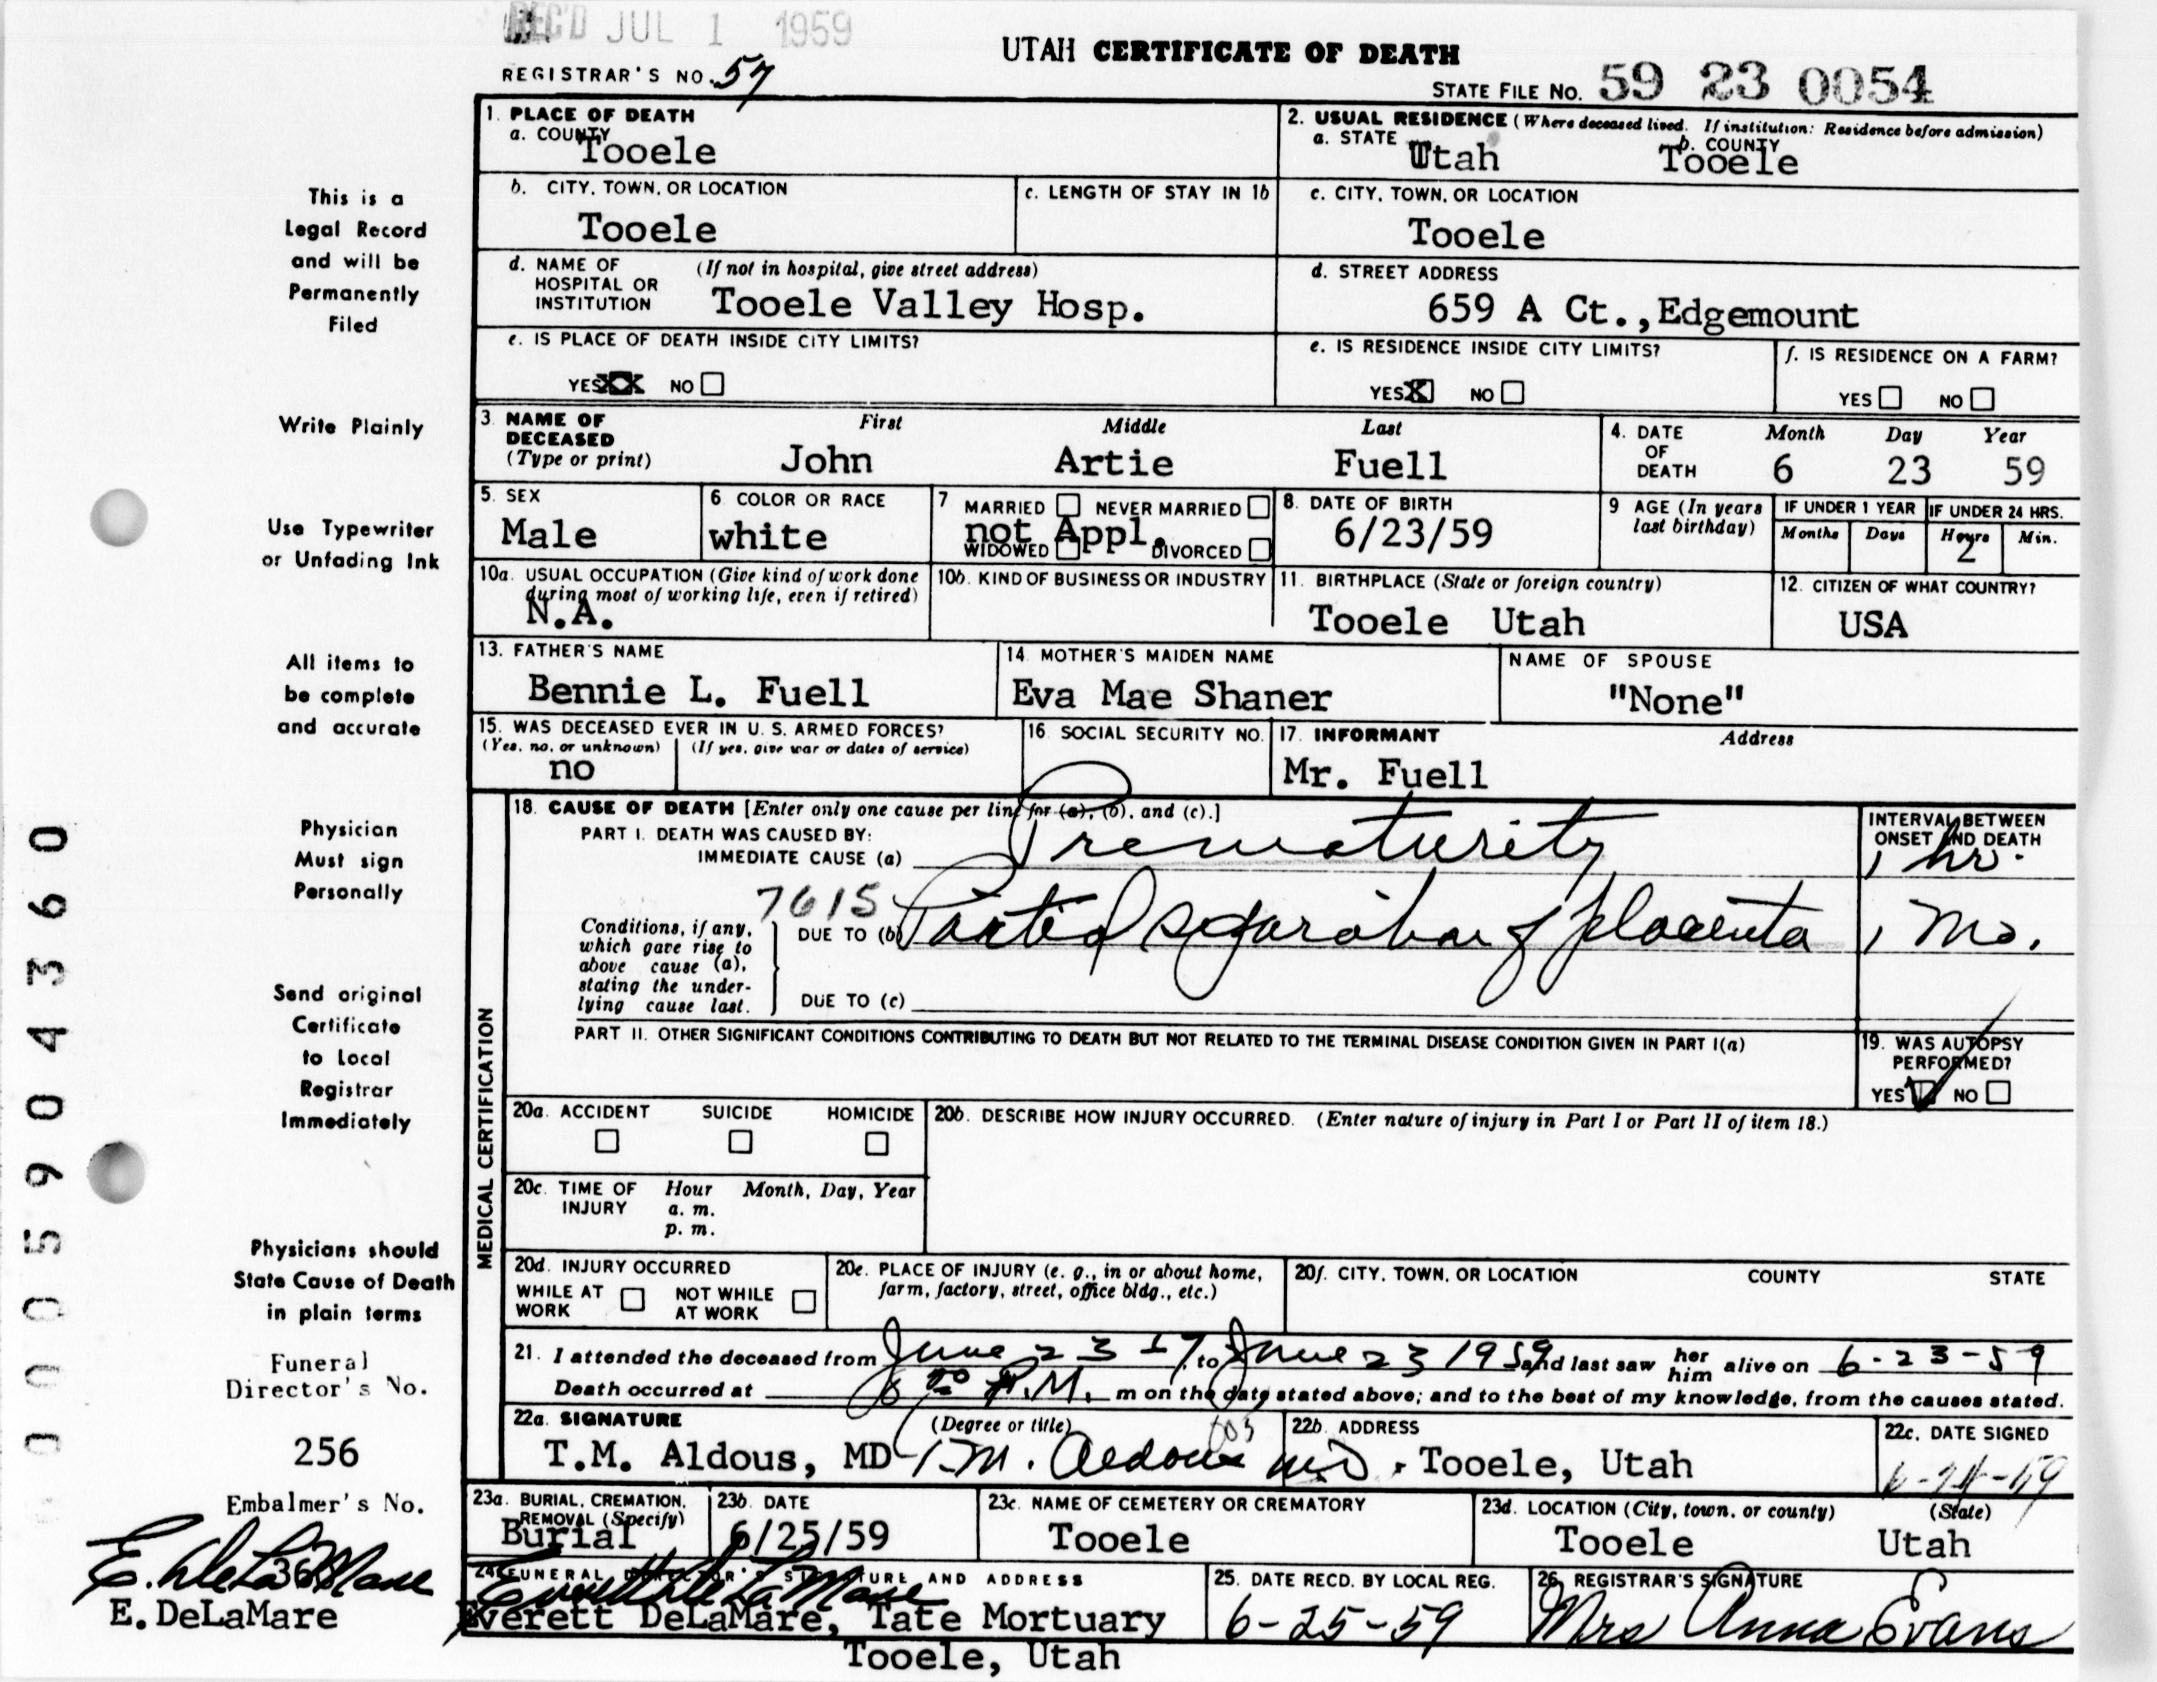 REC'D JUL 1 1959
UTAH CERTIFICATE OF DEATH
REGISTRAR'S NO. 57
STATE FILE No. 59 23 0054
This is a
Legal Record
and will be
Permanently
Filed
Write Plainly
Use Typewriter
or Unfading Ink
All items to
be complete
and accurate
Physician
Must sign
Personally
Send original
Certificate
to Local
Registrar
Immediately
Physicians should
State Cause of Death
in plain terms
Funeral
Director's No.
256
Embalmer's No.
E. DeLaMare
368
E. DeLaMare
0005904360
1. PLACE OF DEATH
a. COUNTY
Tooele
2. USUAL RESIDENCE (Where deceased lived. If institution: Residence before admission)
a. STATE Utah b. COUNTY Tooele
b. CITY, TOWN, OR LOCATION
Tooele
c. LENGTH OF STAY IN 1b
c. CITY, TOWN, OR LOCATION
Tooele
d. NAME OF HOSPITAL OR INSTITUTION (If not in hospital, give street address)
Tooele Valley Hosp.
d. STREET ADDRESS
659 A Ct., Edgemount
e. IS PLACE OF DEATH INSIDE CITY LIMITS?
YES XX NO
e. IS RESIDENCE INSIDE CITY LIMITS?
YES X NO
f. IS RESIDENCE ON A FARM?
YES NO
3. NAME OF DECEASED (Type or print)
First Middle Last
John Artie Fuell
4. DATE OF DEATH Month Day Year
6 23 59
5. SEX
Male
6. COLOR OR RACE
white
7 MARRIED NEVER MARRIED
not Appl.
WIDOWED DIVORCED
8. DATE OF BIRTH
6/23/59
9 AGE (In years last birthday)
IF UNDER 1 YEAR
Months Days
IF UNDER 24 HRS.
Hours Min.
2
10a. USUAL OCCUPATION (Give kind of work done during most of working life, even if retired)
N.A.
10b. KIND OF BUSINESS OR INDUSTRY
11. BIRTHPLACE (State or foreign country)
Tooele Utah
12. CITIZEN OF WHAT COUNTRY?
USA
13. FATHER'S NAME
Bennie L. Fuell
14. MOTHER'S MAIDEN NAME
Eva Mae Shaner
NAME OF SPOUSE
"None"
15. WAS DECEASED EVER IN U. S. ARMED FORCES?
(Yes, no, or unknown) (If yes, give war or dates of service)
no
16. SOCIAL SECURITY NO.
17. INFORMANT Address
Mr. Fuell
MEDICAL CERTIFICATION
18. CAUSE OF DEATH [Enter only one cause per line for (a), (b), and (c).]
INTERVAL BETWEEN ONSET AND DEATH
PART I. DEATH WAS CAUSED BY:
IMMEDIATE CAUSE (a) Prematurity 1 hr.
7615
Conditions, if any, which gave rise to above cause (a), stating the underlying cause last.
DUE TO (b) Partial separation of placenta 1 mo.
DUE TO (c)
PART II. OTHER SIGNIFICANT CONDITIONS CONTRIBUTING TO DEATH BUT NOT RELATED TO THE TERMINAL DISEASE CONDITION GIVEN IN PART I(a)
19. WAS AUTOPSY PERFORMED?
YES NO
20a. ACCIDENT SUICIDE HOMICIDE
20b. DESCRIBE HOW INJURY OCCURRED. (Enter nature of injury in Part I or Part II of item 18.)
20c. TIME OF INJURY Hour Month, Day, Year
a. m.
p. m.
20d. INJURY OCCURRED
WHILE AT WORK NOT WHILE AT WORK
20e. PLACE OF INJURY (e. g., in or about home, farm, factory, street, office bldg., etc.)
20f. CITY, TOWN, OR LOCATION COUNTY STATE
21. I attended the deceased from June 23 to June 23 1959 and last saw her him alive on 6-23-59
Death occurred at P.M. m on the date stated above; and to the best of my knowledge, from the causes stated.
22a. SIGNATURE (Degree or title)
T.M. Aldous, MD T.M. Aldous M.D.
22b. ADDRESS
Tooele, Utah
22c. DATE SIGNED
6-24-59
23a. BURIAL, CREMATION, REMOVAL (Specify)
Burial
23b. DATE
6/25/59
23c. NAME OF CEMETERY OR CREMATORY
Tooele
23d. LOCATION (City, town, or county) (State)
Tooele Utah
24. FUNERAL DIRECTOR'S SIGNATURE AND ADDRESS
Everett DeLaMare
Everett DeLaMare, Tate Mortuary
Tooele, Utah
25. DATE RECD. BY LOCAL REG.
6-25-59
26. REGISTRAR'S SIGNATURE
Mrs Anna Evans